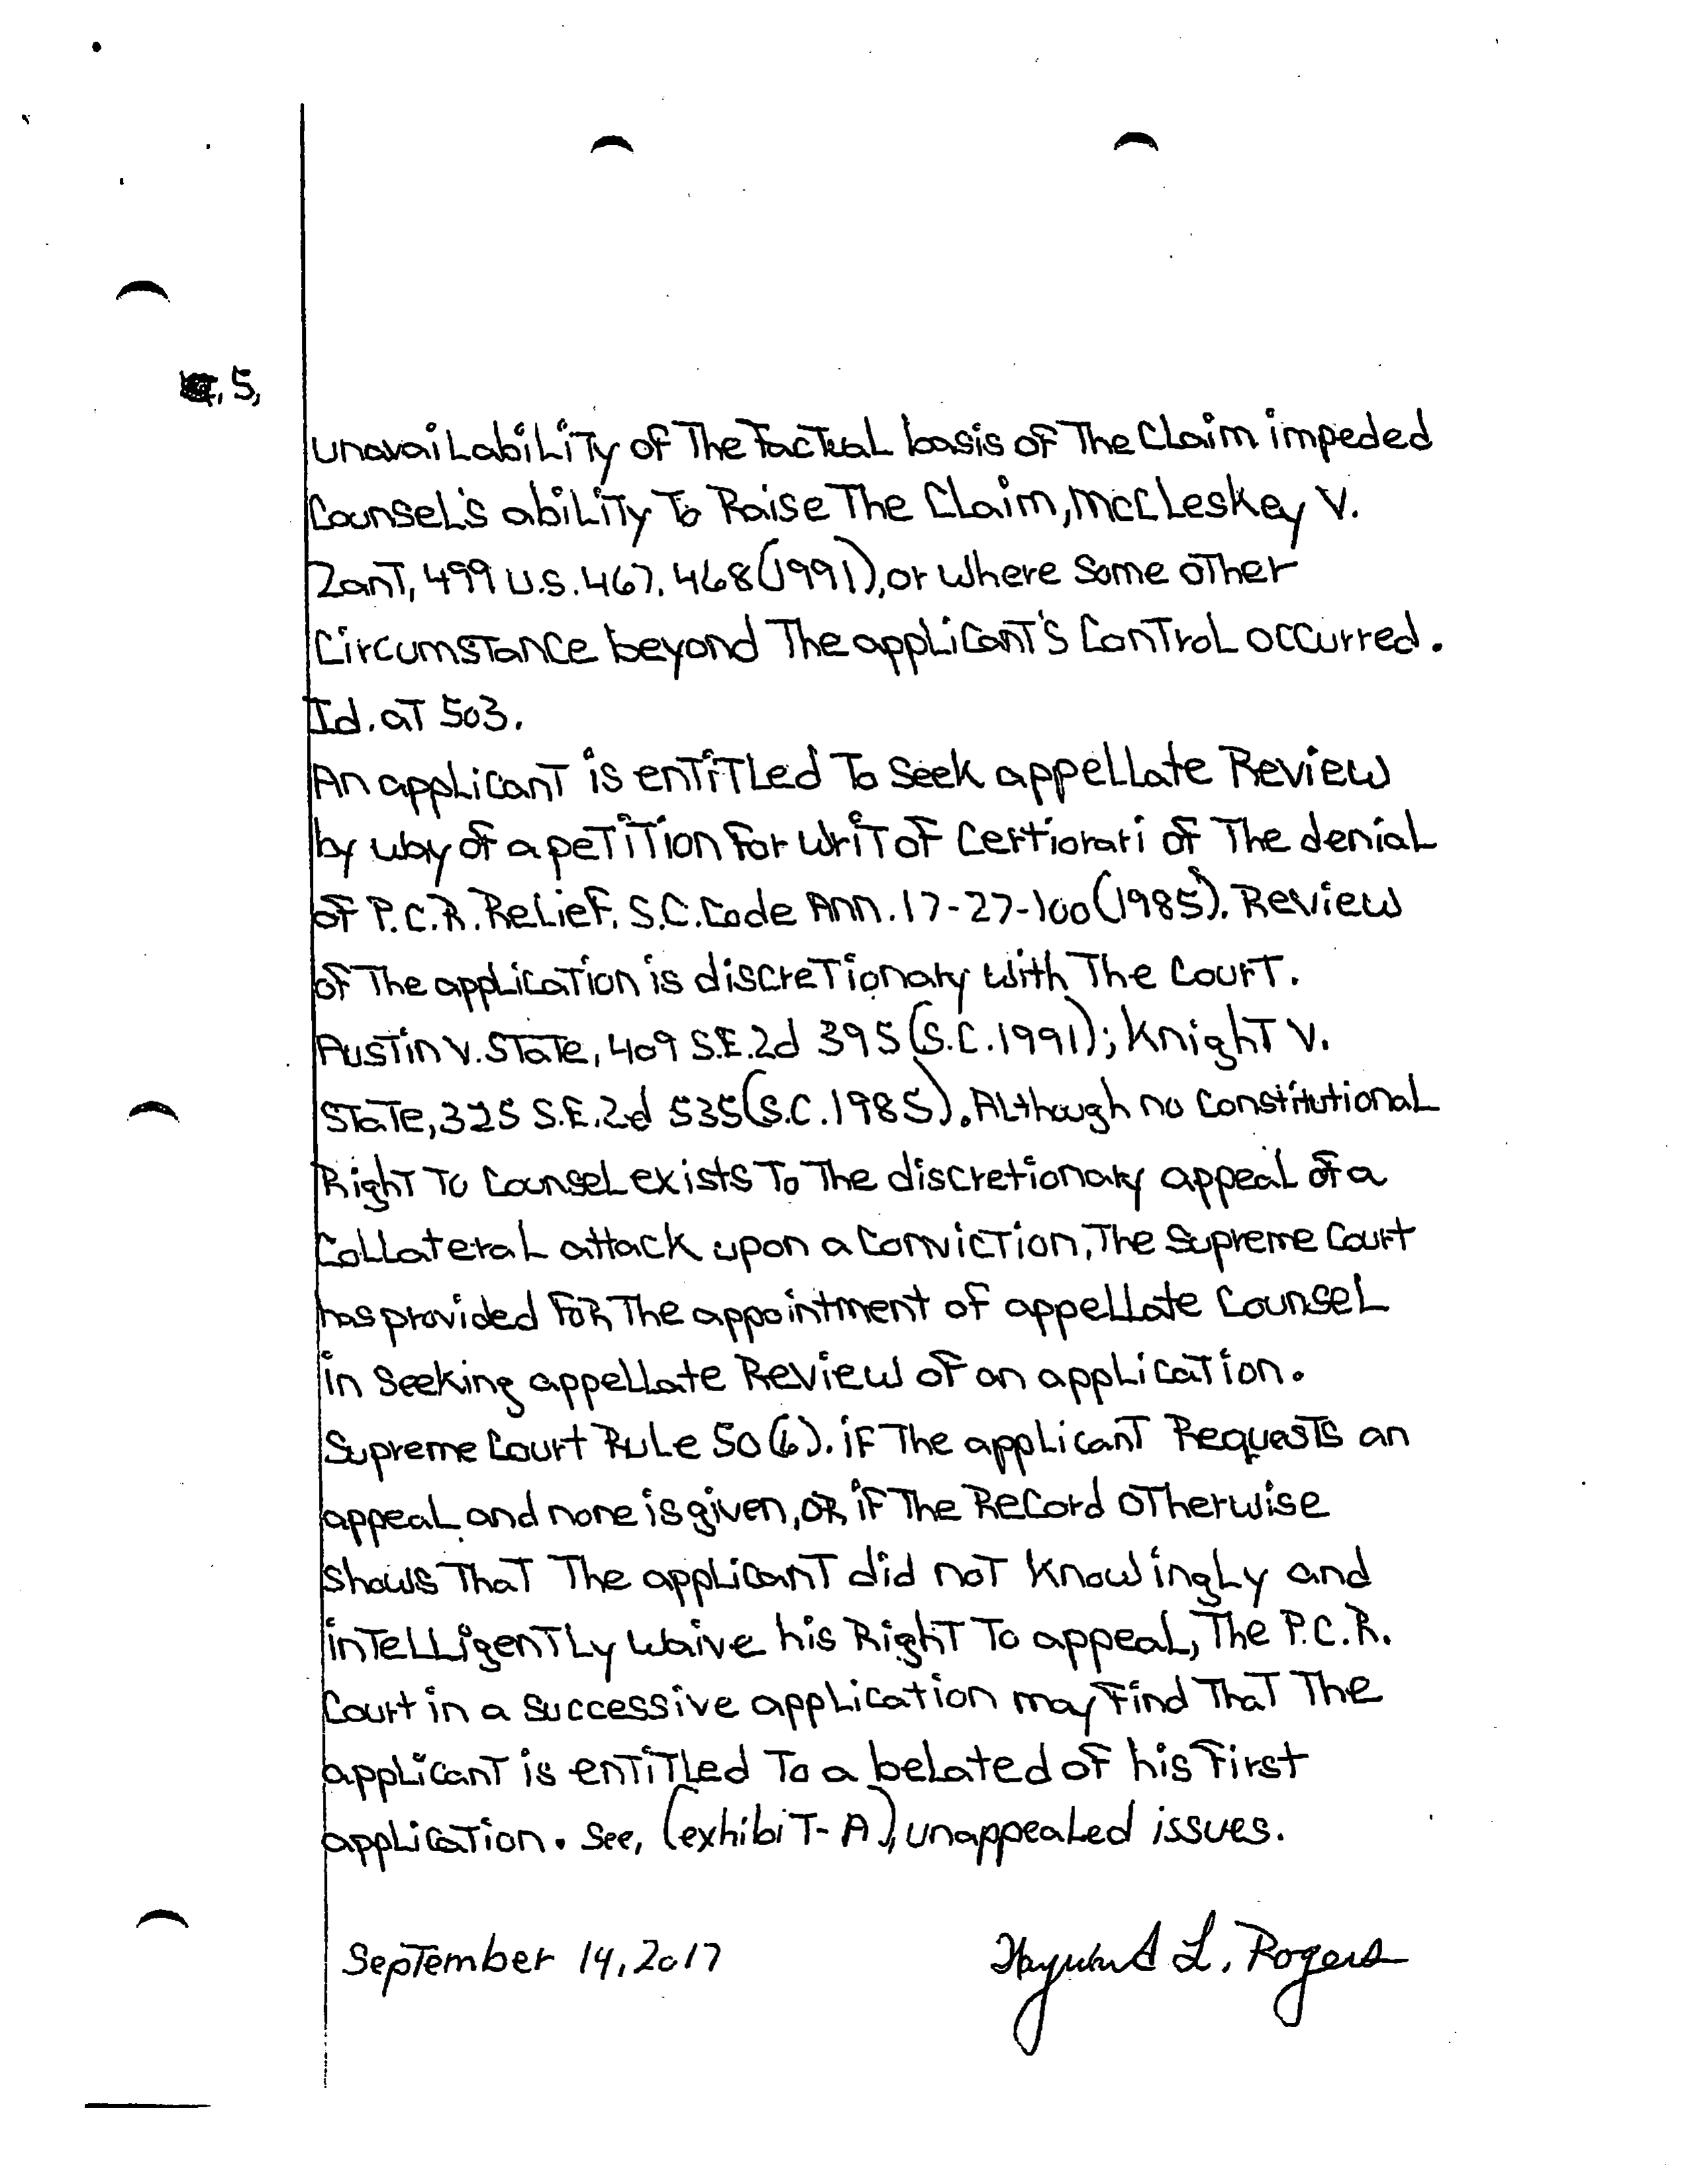 5,
unavailability of The Factual basis of The Claim impeded
Counsel's ability To Raise The Claim, McCleskey V.
Zant, 499 U.S. 467, 468 (1991), or where Some other
Circumstance beyond The applicant's Control occurred.
Id. at 503.
An applicant is entitled To Seek appellate Review
by way of a petition For Writ of Certiorari of The denial
of P.C.R. Relief. S.C. Code Ann. 17-27-100 (1985). Review
of The application is discretionary with The Court.
Austin V. State, 409 S.E.2d 395 (S.C. 1991); Knight V.
State, 325 S.E.2d 535 (S.C. 1985). Although no Constitutional
Right To Counsel exists To The discretionary appeal of a
Collateral attack upon a Conviction, The Supreme Court
has provided For The appointment of appellate Counsel
in Seeking appellate Review of an application.
Supreme Court Rule 50 (6). if The applicant Requests an
appeal and none is given, OR if The Record otherwise
Shows That The applicant did not Knowingly and
intelligently waive his Right To appeal, The P.C.R.
Court in a Successive application may Find That The
applicant is entitled To a belated of his First
application. See, (exhibit-A), unappealed issues.
September 14, 2017 Hayward L. Rogers